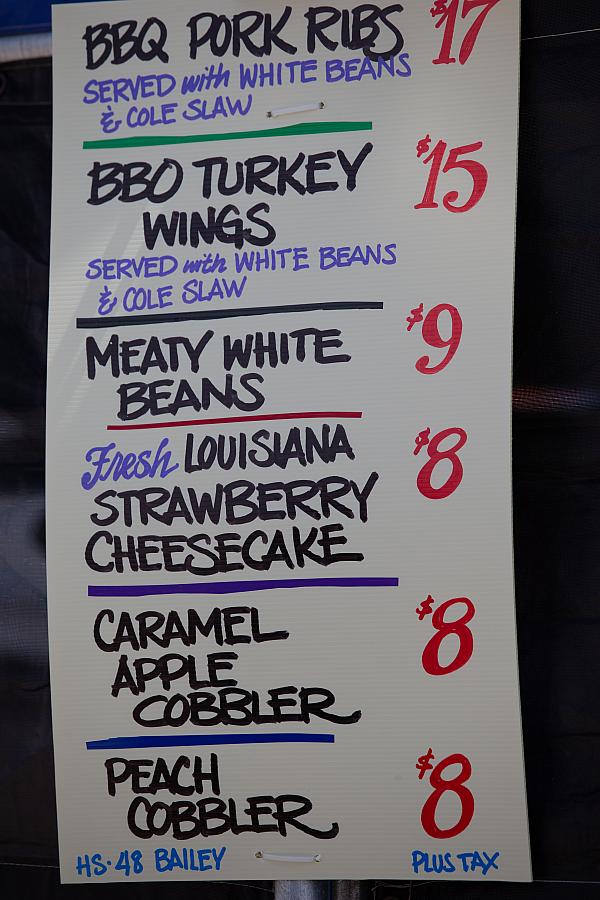 BBQ PORK RIBS $17
SERVED with WHITE BEANS
& COLE SLAW
BBQ TURKEY $15
WINGS
SERVED with WHITE BEANS
& COLE SLAW
MEATY WHITE $9
BEANS
Fresh LOUISIANA $8
STRAWBERRY
CHEESECAKE
CARAMEL $8
APPLE
COBBLER
PEACH $8
COBBLER
HS·48 BAILEY PLUS TAX